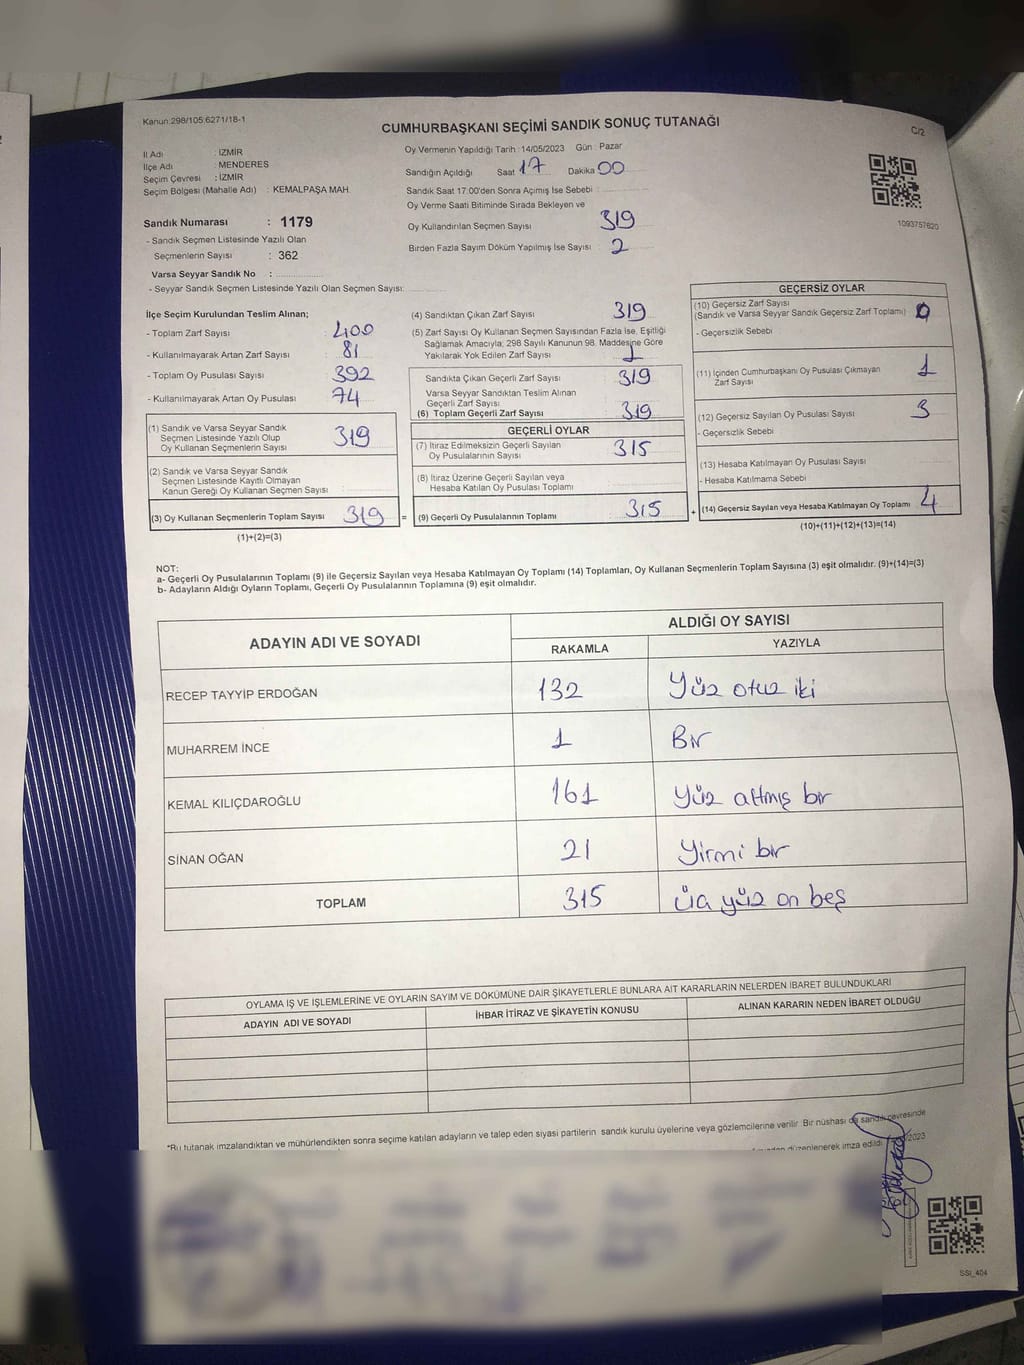 Kanun:298/105;6271/18-1
C/2
CUMHURBAŞKANI SEÇİMİ SANDIK SONUÇ TUTANAĞI
İl Adı : İZMİR
İlçe Adı : MENDERES
Seçim Çevresi : İZMİR
Seçim Bölgesi (Mahalle Adı) : KEMALPAŞA MAH.
Sandık Numarası : 1179
- Sandık Seçmen Listesinde Yazılı Olan
Seçmenlerin Sayısı : 362
Varsa Seyyar Sandık No :
- Seyyar Sandık Seçmen Listesinde Yazılı Olan Seçmen Sayısı:
Oy Vermenin Yapıldığı Tarih :14/05/2023 Gün : Pazar
Sandığın Açıldığı Saat 17 Dakika 00
Sandık Saat 17:00'den Sonra Açımış İse Sebebi :
Oy Verme Saati Bitiminde Sırada Bekleyen ve
Oy Kullandırılan Seçmen Sayısı : 319
Birden Fazla Sayım Döküm Yapılmış İse Sayısı : 2
1093757620
İlçe Seçim Kurulundan Teslim Alınan;
- Toplam Zarf Sayısı : 400
- Kullanılmayarak Artan Zarf Sayısı : 81
- Toplam Oy Pusulası Sayısı : 392
- Kullanılmayarak Artan Oy Pusulası : 74
(1) Sandık ve Varsa Seyyar Sandık
Seçmen Listesinde Yazılı Olup
Oy Kullanan Seçmenlerin Sayısı : 319
(2) Sandık ve Varsa Seyyar Sandık
Seçmen Listesinde Kayıtlı Olmayan
Kanun Gereği Oy Kullanan Seçmen Sayısı
(3) Oy Kullanan Seçmenlerin Toplam Sayısı 319 =
(1)+(2)=(3)
(4) Sandıktan Çıkan Zarf Sayısı : 319
(5) Zarf Sayısı Oy Kullanan Seçmen Sayısından Fazla İse, Eşitliği
Sağlamak Amacıyla, 298 Sayılı Kanunun 98. Maddesine Göre
Yakılarak Yok Edilen Zarf Sayısı : 1
Sandıkta Çıkan Geçerli Zarf Sayısı : 319
Varsa Seyyar Sandıktan Teslim Alınan
Geçerli Zarf Sayısı
(6) Toplam Geçerli Zarf Sayısı : 319
GEÇERLİ OYLAR
(7) İtiraz Edilmeksizin Geçerli Sayılan
Oy Pusulalarının Sayısı : 315
(8) İtiraz Üzerine Geçerli Sayılan veya
Hesaba Katılan Oy Pusulası Toplamı
(9) Geçerli Oy Pusulalarının Toplamı : 315 +
GEÇERSİZ OYLAR
(10) Geçersiz Zarf Sayısı
(Sandık ve Varsa Seyyar Sandık Geçersiz Zarf Toplamı) : 0
- Geçersizlik Sebebi :
(11) İçinden Cumhurbaşkanı Oy Pusulası Çıkmayan
Zarf Sayısı : 1
(12) Geçersiz Sayılan Oy Pusulası Sayısı : 3
- Geçersizlik Sebebi
(13) Hesaba Katılmayan Oy Pusulası Sayısı
- Hesaba Katılmama Sebebi
(14) Geçersiz Sayılan veya Hesaba Katılmayan Oy Toplamı : 4
(10)+(11)+(12)+(13)=(14)
NOT:
a- Geçerli Oy Pusulalarının Toplamı (9) ile Geçersiz Sayılan veya Hesaba Katılmayan Oy Toplamı (14) Toplamları, Oy Kullanan Seçmenlerin Toplam Sayısına (3) eşit olmalıdır. (9)+(14)=(3)
b- Adayların Aldığı Oyların Toplamı, Geçerli Oy Pusulalarının Toplamına (9) eşit olmalıdır.
ADAYIN ADI VE SOYADI ALDIĞI OY SAYISI
RAKAMLA YAZIYLA
RECEP TAYYİP ERDOĞAN 132 Yüz otuz iki
MUHARREM İNCE 1 Bir
KEMAL KILIÇDAROĞLU 161 yüz altmış bir
SİNAN OĞAN 21 Yirmi bir
TOPLAM 315 üç yüz on beş
OYLAMA İŞ VE İŞLEMLERİNE VE OYLARIN SAYIM VE DÖKÜMÜNE DAİR ŞİKAYETLERLE BUNLARA AİT KARARLARIN NELERDEN İBARET BULUNDUKLARI
ADAYIN ADI VE SOYADI İHBAR İTİRAZ VE ŞİKAYETİN KONUSU ALINAN KARARIN NEDEN İBARET OLDUĞU
*Bu tutanak imzalandıktan ve mühürlendikten sonra seçime katılan adayların ve talep eden siyasi partilerin sandık kurulu üyelerine veya gözlemcilerine verilir. Bir nüshası da sandık çevresinde
düzenlenerek imza edildi. 2023
SSİ_404